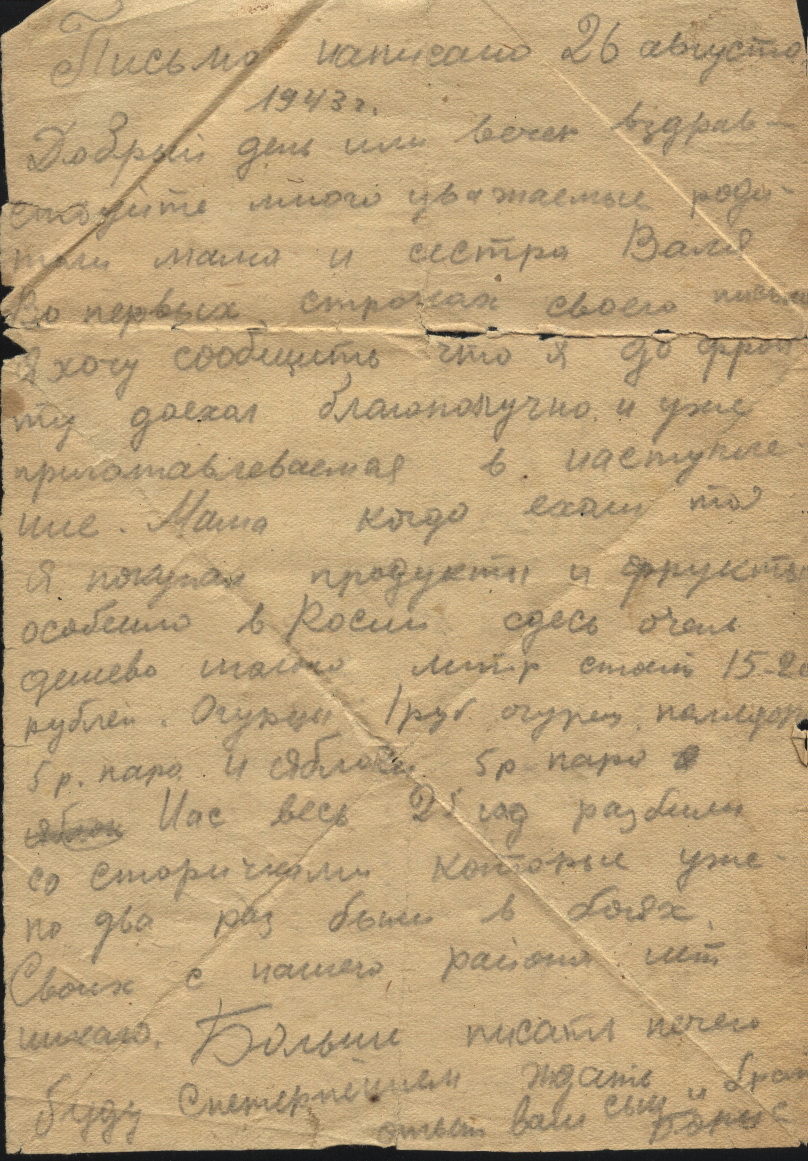 Письмо написано 26 августа
1943 г.
Добрый день или вечер вздрав-
ствуйте много уважаемые роди-
тели мама и сестра Валя
Во первых строках своего письма
я хочу сообщить что я до фрон
ту доехал благополучно и уже
приготавлеваемся в наступле-
ние. Мама когда ехали то
я покупал продукты и фрукты
особенно в Росии сдесь очень
дешево молоко литр стоит 15-20
рублей. Огурцы 1 руб огурец, помидор
5 р. пара и яблоки 5 р пара
яблок Нас весь 25 год разбили
со старичками которые уже
по два раз были в боях.
Своих с нашего района нет
никого. Больше писать нечего
буду Снетерпением ждать
ответ ваш сын и брат
Борис